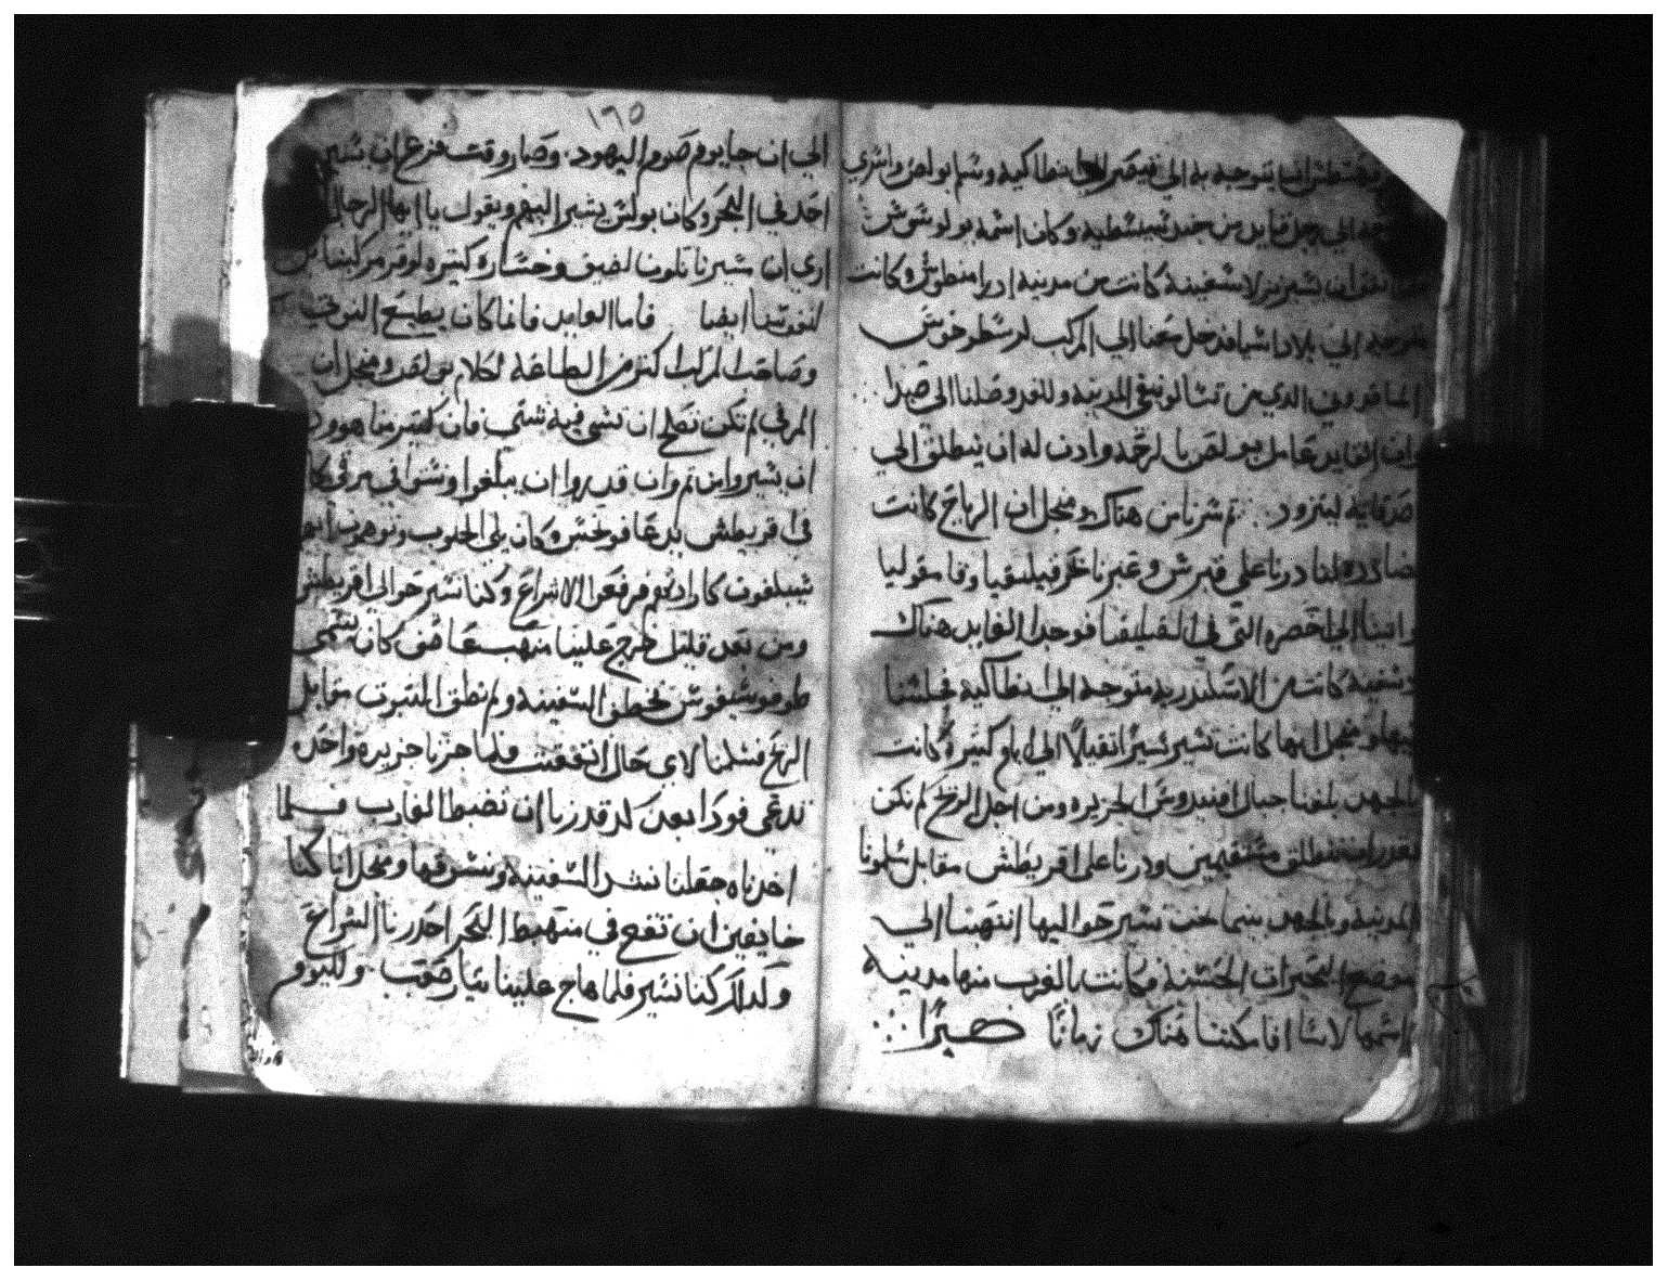 فهسطس ان يتوجه به الي قيصر الي انطاكية وسلم بولص واسري
الي رجل قايد من جند سبسطيه وكان اسمه يولويوس
ان نسير نزلا سفينة كانت من مدينة ادرامنطوس وكانت
متوجهه الي بلاد اسيا فدخل معنا الي المركب ارسطرخوس
الماقدوني الذي من تسالونيقي المدينه وللغد وصلنا الي صيدا
وان القايد عامل بولص بالرحمه واذن له ان ينطلق الي
صدقايه ليتزود ثم سرنا من هناك ومنجل ان الرياح كانت
مضادده لنا درنا علي قبرس وعبرنا بحر قيليقيا وفامفوليا
واتينا الي التي في القيليقيا فوجد القايد هناك
سفينة كانت من الاسكندريه متوجهة الي انطاكية فجلسنا
فيها ومنجل انها كانت تسير سيرا ثقيلا الي ايام كثيرة كانت
بالجهد بلغنا حبال اقنيدوس الجزيره ومن اجل الريح لم نكن
نقدر ان ننطلق مستقيمين ودرنا علي اقريطش مقابل سلمونا
المدينه وبالجهد بينما نحن نسير حواليها انتهينا الي
موضع البحيرات الحسنة وكانت بالقرب منها مدينه
اسمها لاسا اقامكثنا هناك زمانا كبيرا
١٦٥
الي ان جا يوم صوم اليهود وصار وقت فزع ان نسير
احد في البحر وكان بولس يشير اليهم ويقول يا ايها الرجال
اري ان سيرنا تكون لضيق وخسارة كثيره لوقر مركبنا
لنفوسنا ايضا فاما القايد فانما كان يطيع النوتي
وصاحب المركب اكثر من الطاعة لكلام بولص ومنجل ان
المرفي لم تكن تصلح ان نشتي فيه شتي فان كثير منا هوو
ان نسير وا من ثم وان قدروا ان يبلغوا ونشتوا في مرفي كان
في اقريطش يدعا فونخس وكان يلي الجنوب
سيبلغون كارادتهم فرفعوا الاشراع وكنا نسير حوالي اقريطش
ومن بعد قليل خرج علينا مهب عاصف كان يسمي
طوفونيقوس فخطف السفينه ولم نطق الثبوت مقابل
الريح فسلمنا لاي حال اتفقت فلما جزنا جزيره واحده
تدعي قودا بعد كد قدرنا ان نضبط القارب فلما
اخذناه جعلنا نشد السفينه ونسوقها ومنجل انا كنا
خايفين ان نقع في مهبط البحر احدرنا الشراع
وكذلك كنا نسير فلما هاج علينا تيار صعب ولليوم